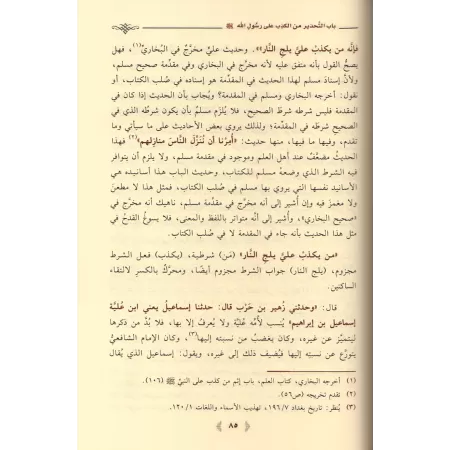 باب التَّحذير من الكذب على رسُول الله ﷺ
فإنَّه من يكذبْ عليَّ يلج النَّار»». وحديث عليٍّ مخرَّج في البُخاريِّ(١)، فهل
يصحُّ القول بأنه متفق عليه لأنه مخرَّج في البخاري وفي مقدَّمة صحيح مسلم،
ولأنَّ إسنادَ مسلم لهذا الحديث في المقدمة هو إسناده في صُلب الكتاب، أو
نقول: أخرجه البخاري ومسلم في المقدمة؟ ويُجاب بأن الحديث إذا كان في
المقدمة فليس شرطه شرط الصحيح، فلا يَلزم مسلمٌ بأن يكون شرطُه الذي في
الصحيح شرطَه في المقدِّمة؛ ولذلك يروي بعض الأحاديث على ما سيأتي وما
تقدم، وفيها ما فيها، منها حديث: «أُمِرْنا أن نُنَزِّلَ النَّاسَ منازلهم»(٢) فهذا
الحديث مضعَّف عند أهل العلم وموجود في مقدمة مسلم، ولا يلزم أن يتوافر
فيه الشرط الذي وضعهُ مسلمٌ للكتاب، وحديث الباب هذا أسانيده هي
الأسانيد نفسها التي يروي بها مسلم في صُلب الكتاب، فمثل هذا لا مطعنَ
ولا مغمزَ فيه وإن أُشير إلى أنه مخرَّج في مقدمة مسلم، ناهيك أنه مخرَّج في
«صحيح البخاري»، وأُشير إلى أنَّه متواتر باللفظ والمعنى، فلا يسوغُ القدحُ في
مثل هذا الحديث بأنه جاء في المقدمة لا في صُلب الكتاب.
«من يكذبْ عليَّ يلج النَّار» (مَن) شرطية، (يكذب) فعل الشرط
مجزوم، (يلج النار) جواب الشرط مجزوم أيضًا، ومحرَّكٌ بالكسرِ لالتقاء
الساكنين.
قال: «وحدثني زُهير بن حَرْب قال: حدثنا إسماعيلُ يعني ابن عُليَّة
إسماعيل بن إبراهيم» يُنسب لأُمِّه عُليَّة ولا يُعرفُ إلا بها، فلا بُدَّ من ذكرها
ليتميَّز عن غيره، وكان يغضبُ من نسبته إليها(٣)، وكان الإمام الشافعيُّ
يتورَّع عن نسبته إليها فيُضيف ذلك إلى غيره، ويقول: إسماعيل الذي يُقال
(١) أخرجه البخاري، كتاب العلم، باب إثم من كذب على النبيِّ ﷺ (١٠٦).
(٢) تقدم تخريجه (ص٥٦).
(٣) يُنظر: تاريخ بغداد ١٩٦/٧، تهذيب الأسماء واللغات ١٢٠/١.
٨٥